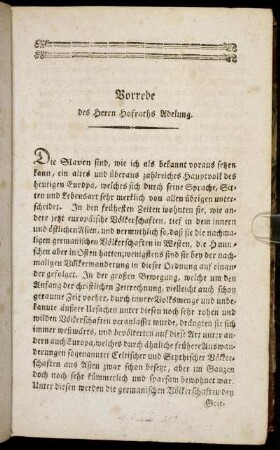 Vorrede
des Herrn Hofraths Adelung.
Die Slaven sind, wie ich als bekannt voraus setzen
kann, ein altes und überaus zahlreiches Hauptvolk des
heutigen Europa, welches sich durch seine Sprache, Sit-
ten und Lebensart sehr merklich von allen übrigen unter-
scheidet. In den frühesten Zeiten wohnten sie, wie an-
dere jetzt europäische Völkerschaften, tief in dem innern
und östlichen Asien, und vermuthlich so, daß sie die nachma-
ligen germanischen Völkerschaften in Westen, die Hunni-
schen aber in Osten hatten; wenigstens sind sie bey der nach-
maligen Völkerwanderung in dieser Ordnung auf einan-
der gefolgt. In der großen Bewegung, welche um den
Anfang der christlichen Zeitrechnung, vielleicht auch schon
geraume Zeit vorher, durch innere Volksmenge und unbe-
kannte äußere Ursachen unter diesen noch sehr rohen und
wilden Völkerschaften veranlaßt wurde, drängten sie sich
immer westwärts, und bevölkerten auf diese Art unter an-
dern auch Europa, welches durch ähnliche frühere Auswan-
derungen sogenannter Celtischer und Scythischer Völker-
schaften aus Asien zwar schon besetzt, aber im Ganzen
doch noch sehr kümmerlich und sparsam bewohnt war.
Unter diesen werden die germanischen Völkerschaften den
Grie-